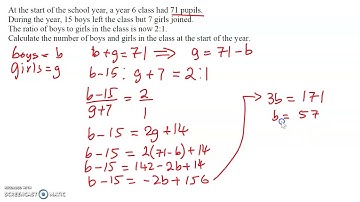 At the start of the school year, a year 6 class had 71 pupils.
During the year, 15 boys left the class but 7 girls joined.
The ratio of boys to girls in the class is now 2:1.
Calculate the number of boys and girls in the class at the start of the year.
boys = b
girls = g
b+g = 71 ⇒ g = 71-b
b-15 : g+7 = 2:1
b-15/g+7 = 2/1
b-15 = 2g+14
b-15 = 2(71-b)+14
b-15 = 142-2b+14
b-15 = -2b+156
3b = 171
b = 57
RECORDED WITH
SCREENCAST MATIC